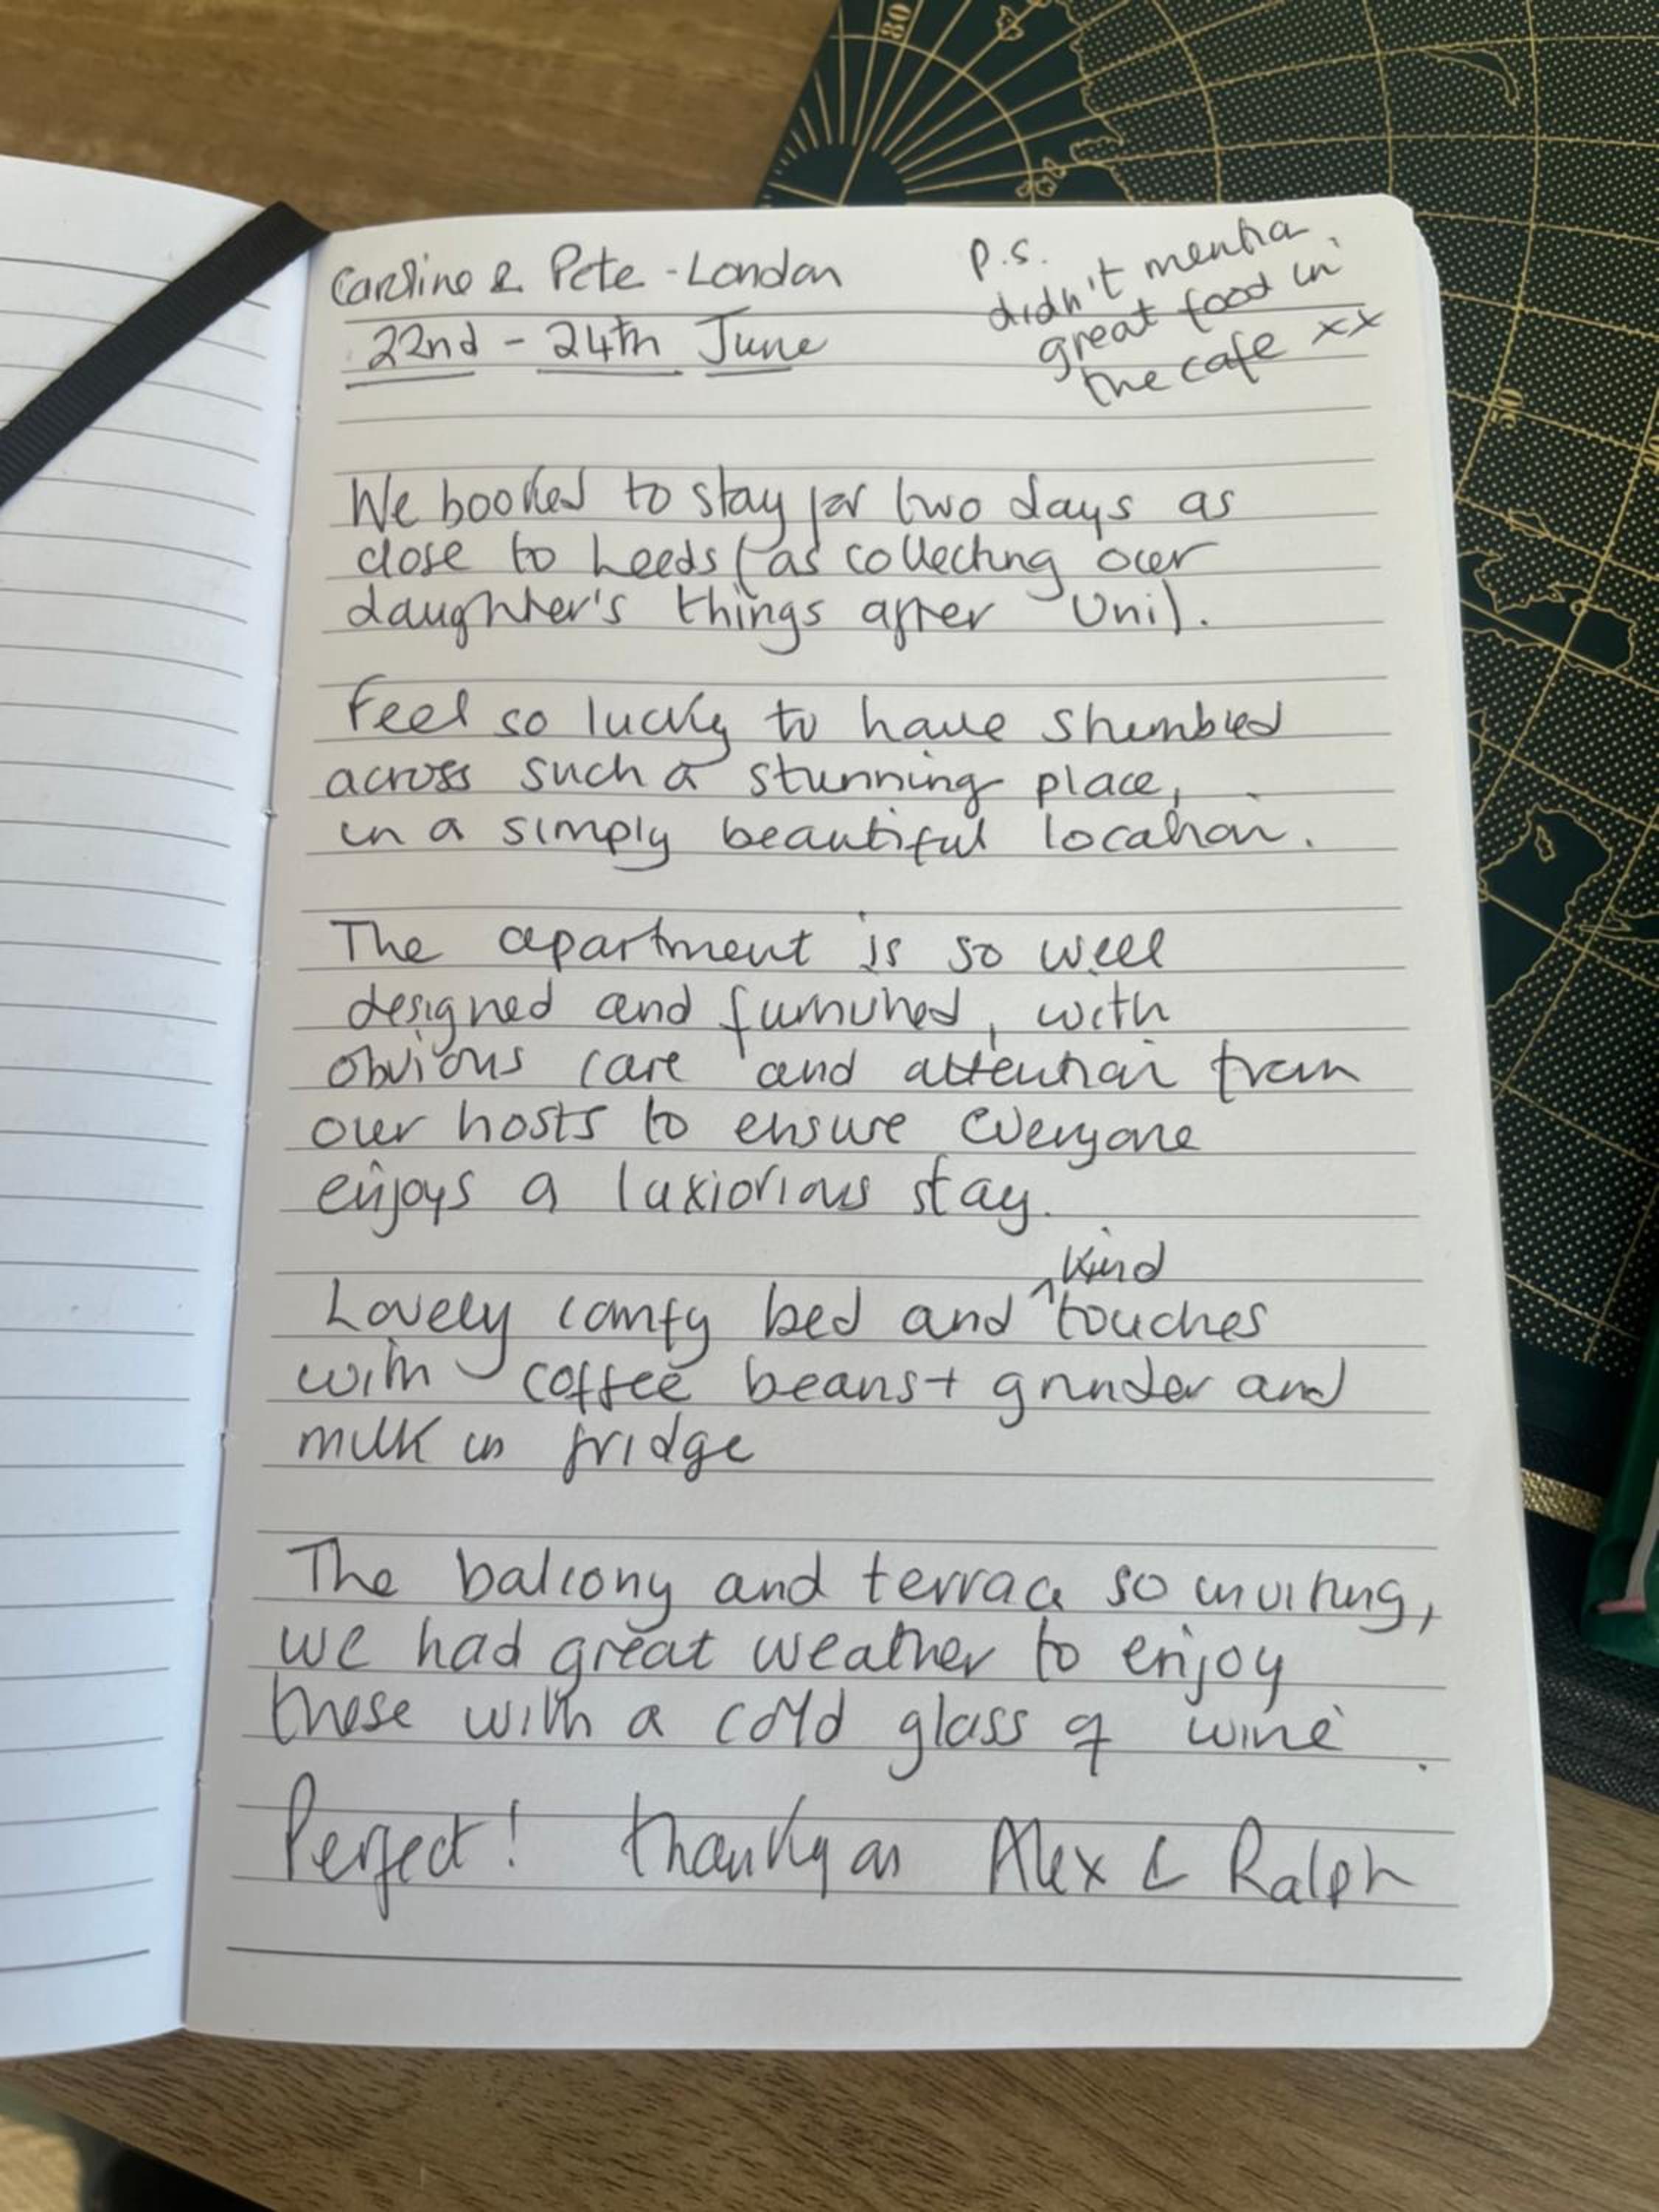 Caroline & Pete - London
22nd - 24th June
P.S.
didn't mention
great food in
the cafe xx
We booked to stay for two days as
close to Leeds (as collecting our
daughter's things after Uni).
Feel so lucky to have stumbled
across such a stunning place,
in a simply beautiful location.
The apartment is so well
designed and furnished, with
obvious care and attention from
our hosts to ensure everyone
enjoys a luxiorious stay.
Lovely comfy bed and ^kind touches
with coffee beans + grinder and
milk in fridge
The balcony and terrace so inviting,
we had great weather to enjoy
these with a cold glass of wine.
Perfect! Thankyou Alex & Ralph
80
50